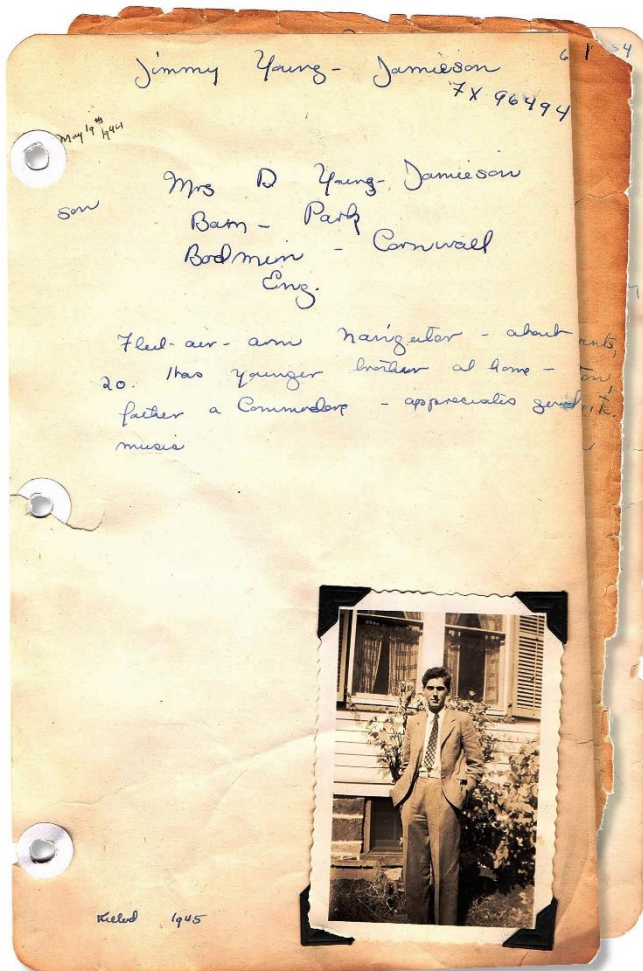 6 1 54
Jimmy Young-Jamieson
FX 96494
May 19th 1944
Mrs D Young-Jamieson
son
Barn - Park
Bodmin - Cornwall
Eng.
Fleet-air-arm navigator - about
20. Has younger brother at home -
father a Commodore - appreciates good
music
Killed 1945